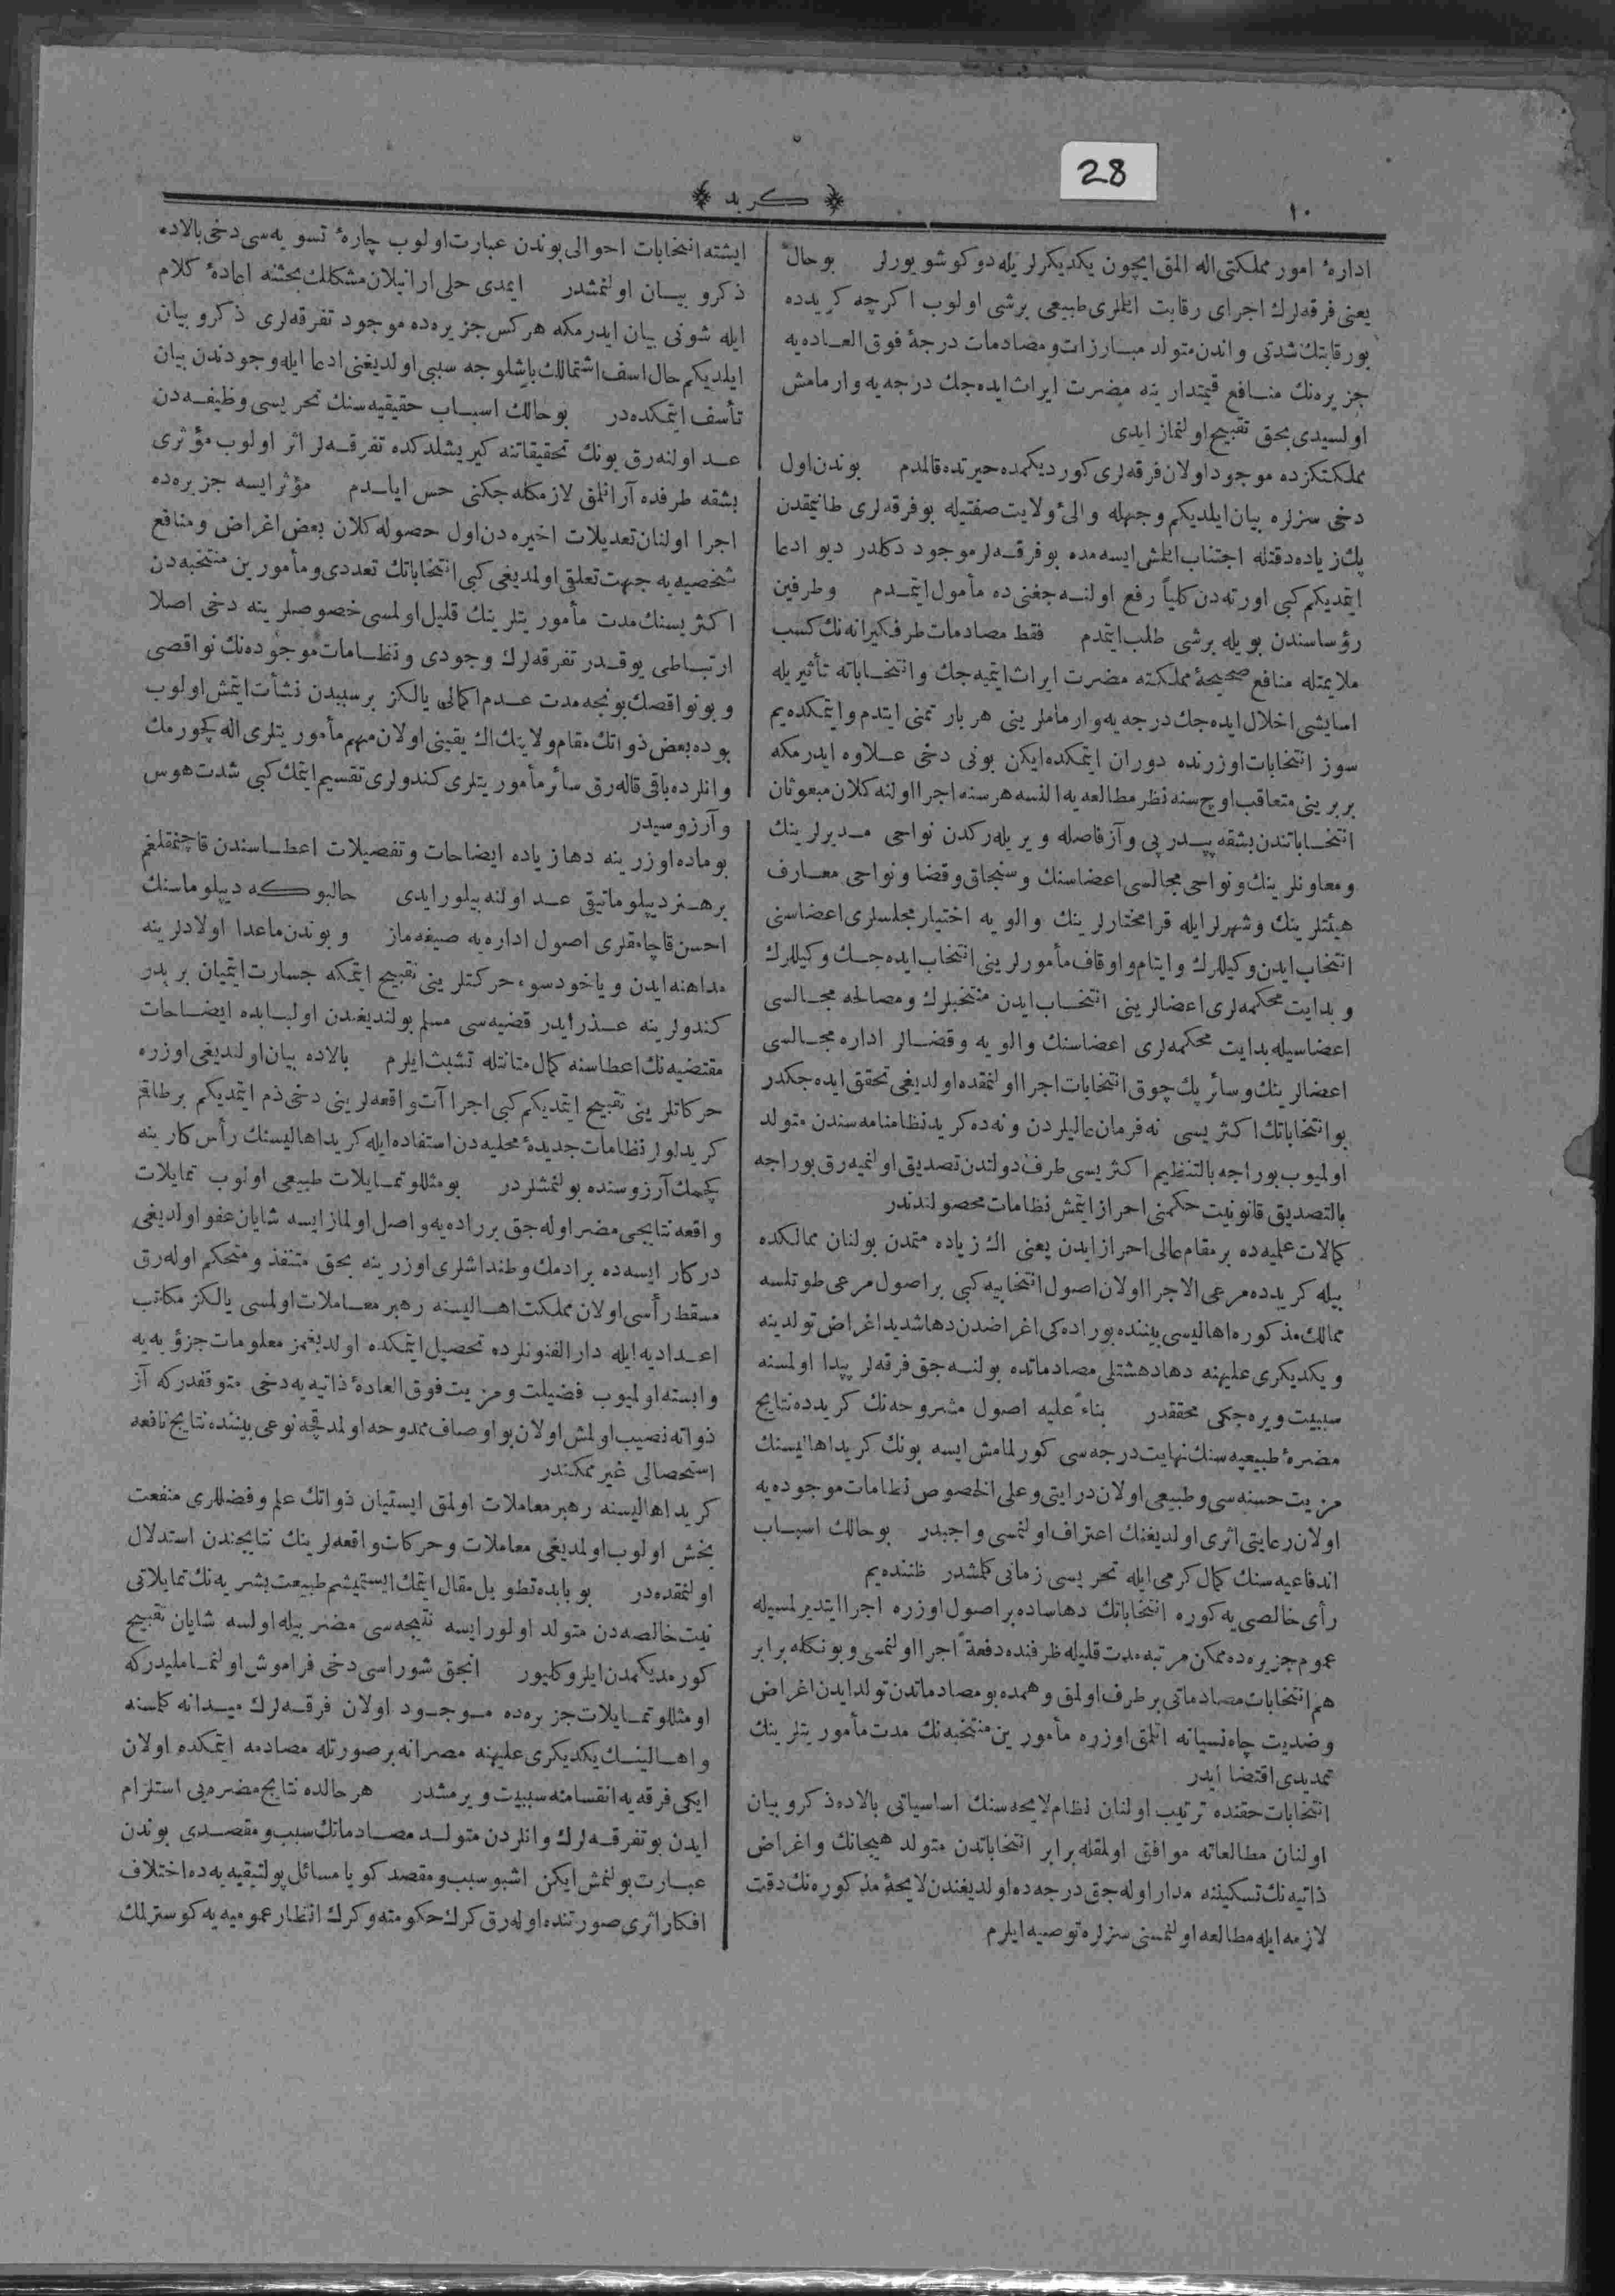 28
١٠
كريد
اداره‌ٔ امور مملكتى اله المق ايچون يكديكرلر يله دوكوشيورلر بوحال
يعنى فرقه‌لرك اجراى رقابت ايتلرى طبيعى برشى اولوب اكرچه كريدده
بورقابتك شدتى واندن متولد مبارزات ومصادمات درجهٔ فوق العاده‌يه
جزيره‌نك منافع قيمتدارينه مضرت ايراث ايده‌جك درجه‌يه وارمامش
اولسيدى بحق تقبيح اولنماز ايدى
مملكتكزده موجود اولان فرقه‌لرى كورديكمده حيرتده قالمدم بوندن اول
دخى سزلره بيان ايلديكم وجهله والئ ولايت صفتيله بوفرقه‌لرى طانيمقدن
پك زياده دقتله اجتناب ايلمش ايسه‌مده بوفرقه‌لر موجود دكلدر ديو ادعا
ايتمديكم كبى اورته‌دن كلياً رفع اولنه‌جغنى ده مأمول ايتمدم وطرفين
رؤساسندن بويله برشى طلب ايتمدم فقط مصادمات طرفكيرانه‌نك كسب
ملايمتله منافع صحيحهٔ مملكته مضرت ايراث ايتميه‌جك وانتخاباته تأثيريله
اسايشى اخلال ايده‌جك درجه‌يه وارمامالرينى هر بار تمنى ايتدم وايتمكده‌يم
سوز انتخابات اوزرنده دوران ايتمكده ايكن بونى دخى علاوه ايدرمكه
بربرينى متعاقب اوچ سنه نظر مطالعه‌يه النسه هرسنه اجرا اولنه كلان مبعوثان
انتخاباتندن بشقه پيدرپى وآز فاصله ويريله‌ركدن نواحى مديرلرينك
ومعاونلرينك ونواحى مجالسى اعضاسنك وسنجاق وقضا ونواحى معارف
هيئتلرينك وشهرلر ايله قرا مختارلرينك والويه اختيار مجلسلرى اعضاسنى
انتخاب ايدن وكيللرك وايتام واوقاف مأمورلرينى انتخاب ايده‌جك وكيللرك
وبدايت محكمه‌لرى اعضالرينى انتخاب ايدن منتخبلرك ومصالحه مجالسى
اعضاسيله بدايت محكمه‌لرى اعضاسنك والويه وقضالر اداره مجالسى
اعضالرينك وسائر پك چوق انتخابات اجرا اولنمقده اولديغى تحقق ايده‌جكدر
بو انتخاباتك اكثريسى نه فرمان عاليلردن ونه‌ده كريد نظامنامه‌سندن متولد
اولميوب بوراجه بالتنظيم اكثريسى طرف دولتدن تصديق اولنميه‌رق بوراجه
بالتصديق قانونيت حكمنى احراز ايتمش نظامات محصولندندر
كمالات علميه‌ده بر مقام عالى احراز ايدن يعنى اك زياده متمدن بولنان ممالكده
بيله كريدده مرعى الاجرا اولان اصول انتخابيه كبى براصول مرعى طوتلسه
ممالك مذكوره اهاليسى بيننده بوراده‌كى اغراضدن دها شديد اغراض تولدينه
ويكديكرى عليهنه دها دهشتلى مصادماتده بولنه‌جق فرقه‌لر پيدا اولمسنه
سببيت ويره‌جكى محققدر بناءً عليه اصول مشروحه‌نك كريدده نتايج
مضرهٔ طبيعيه‌سنك نهايت درجه‌سى كورلمامش ايسه بونك كريد اهاليسنك
مزيت حسنه‌سى وطبيعى اولان درايتى وعلى الخصوص نظامات موجوده‌يه
اولان رعايتى اثرى اولديغنك اعتراف اولنمسى واجبدر بوحالك اسباب
اندفاعيه‌سنك كمال كرمى ايله تحريسى زمانى كلمشدر ظننده‌يم
رأى خالصى‌يه كوره انتخاباتك دها ساده براصول اوزره اجرا ايتديرلمسيله
عموم جزيره‌ده ممكن مرتبه مدت قليله ظرفنده دفعةً اجرا اولنمسى وبونكله برابر
هم انتخابات مصادماتى برطرف اولمق وهمده بو مصادماتدن تولد ايدن اغراض
وضديت چاه نسيانه اتلمق اوزره مأمورين منتخبه‌نك مدت مأموريتلرينك
تمديدى اقتضا ايدر
انتخابات حقنده ترتيب اولنان نظام لايحه‌سنك اساسياتى بالاده ذكر وبيان
اولنان مطالعاته موافق اولمقله برابر انتخاباتدن متولد هيجانك واغراض
ذاتيه‌نك تسكيننه مدار اوله‌جق درجه‌ده اولديغندن لايحهٔ مذكوره‌نك دقت
لازمه ايله مطالعه اولنمسنى سزلره توصيه ايلرم
ايشته انتخابات احوالى بوندن عبارت اولوب چارهٔ تسويه‌سى دخى بالاده
ذكر وبيان اولنمشدر ايمدى حلى ارانيلان مشكلك بحثنه اعادهٔ كلام
ايله شونى بيان ايدرمكه هركس جزيره‌ده موجود تفرقه‌لرى ذكر وبيان
ايلديكم حال اسف اشتمالك باشلوجه سببى اولديغنى ادعا ايله وجودندن بيان
تأسف ايتمكده‌در بوحالك اسباب حقيقيه‌سنك تحريسى وظيفه‌دن
عد اولنه‌رق بونك تحقيقاتنه كيريشلدكده تفرقه‌لر اثر اولوب مؤثرى
بشقه طرفده آرانلمق لازمكله‌جكنى حس ايلدم مؤثر ايسه جزيره‌ده
اجرا اولنان تعديلات اخيره‌دن اول حصوله كلان بعض اغراض ومنافع
شخصيه‌يه جهت تعلقى اولمديغى كبى انتخاباتك تعددى ومأمورين منتخبه‌دن
اكثريسنك مدت مأموريتلرينك قليل اولمسى خصوصلرينه دخى اصلا
ارتباطى يوقدر تفرقه‌لرك وجودى ونظامات موجوده‌نك نواقصى
وبو نواقصك بونجه مدت عدم اكمالى يالكز برسببدن نشأت ايتمش اولوب
بوده بعض ذواتك مقام ولايتك اك يقينى اولان مهم مأموريتلرى اله كچورمك
وانلرده باقى قاله‌رق سائر مأموريتلرى كندولرى تقسيم ايتمك كبى شدت هوس
وآرزوسيدر
بوماده اوزرينه دها زياده ايضاحات وتفصيلات اعطاسندن قاچنمقلغم
برهنر ديپلوماتيقى عد اولنه بيلور ايدى حالبوكه ديپلوماسنك
احسن قاچامقلرى اصول اداره‌يه صيغه‌ماز وبوندن ماعدا اولادلرينه
مداهنه ايدن وياخود سوء حركتلرينى تقبيح ايتمكه جسارت ايتميان بر پدر
كندولرينه عذر ايدر قضيه‌سى مسلم بولنديغندن اولبابده ايضاحات
مقتضيه‌نك اعطاسنه كمال متانتله تشبث ايلرم بالاده بيان اولنديغى اوزره
حركاتلرينى تقبيح ايتمديكم كبى اجراآت واقعه‌لرينى دخى ذم ايتمديكم برطاقم
كريدلولر نظامات جديدهٔ محليه‌دن استفاده ايله كريد اهاليسنك رأس كارينه
كچمك آرزوسنده بولنمشلردر بومثللو تمايلات طبيعى اولوب تمايلات
واقعه نتايجى مضر اوله‌جق برراده‌يه واصل اولماز ايسه شايان عفو اولديغى
دركار ايسه‌ده برادمك وطنداشلرى اوزرينه بحق متنفذ ومتحكم اوله‌رق
مسقط رأسى اولان مملكت اهاليسنه رهبر معاملات اولمسى يالكز مكاتب
اعداديه ايله دارالفنونلرده تحصيل ايتمكده اولديغمز معلومات جزؤيه‌يه
وابسته اولميوب فضيلت ومزيت فوق العادهٔ ذاتيه‌يه دخى متوقفدركه آز
ذواته نصيب اولمش اولان بو اوصاف ممدوحه اولمدقجه نوعى بيننده نتايج نافعه
استحصالى غير ممكندر
كريد اهاليسنه رهبر معاملات اولمق ايستيان ذواتك علم وفضللرى منفعت
بخش اولوب اولمديغى معاملات وحركات واقعه‌لرينك نتايجندن استدلال
اولنمقده‌در بوبابده تطويل مقال ايتمك ايستميشم طبيعت بشريه‌نك تمايلاتى
نيت خالصه‌دن متولد اولور ايسه نتيجه‌سى مضر بيله اولسه شايان تقبيح
كورمديكمدن ايلرو كليور انجق شوراسى دخى فراموش اولنمامليدركه
اومثللو تمايلات جزيره‌ده موجود اولان فرقه‌لرك ميدانه كلمسنه
واهالينك يكديكرى عليهنه مصرانه برصورتله مصادمه ايتمكده اولان
ايكى فرقه‌يه انقسامنه سببيت ويرمشدر هر حالده نتايج مضره‌يى استلزام
ايدن بو تفرقه‌لرك وانلردن متولد مصادماتك سبب ومقصدى بوندن
عبارت بولنمش ايكن اشبو سبب ومقصد كويا مسائل پولتيقيه‌يه‌ده اختلاف
افكار اثرى صورتنده اوله‌رق كرك حكومته وكرك انظار عموميه‌يه كوسترلمك